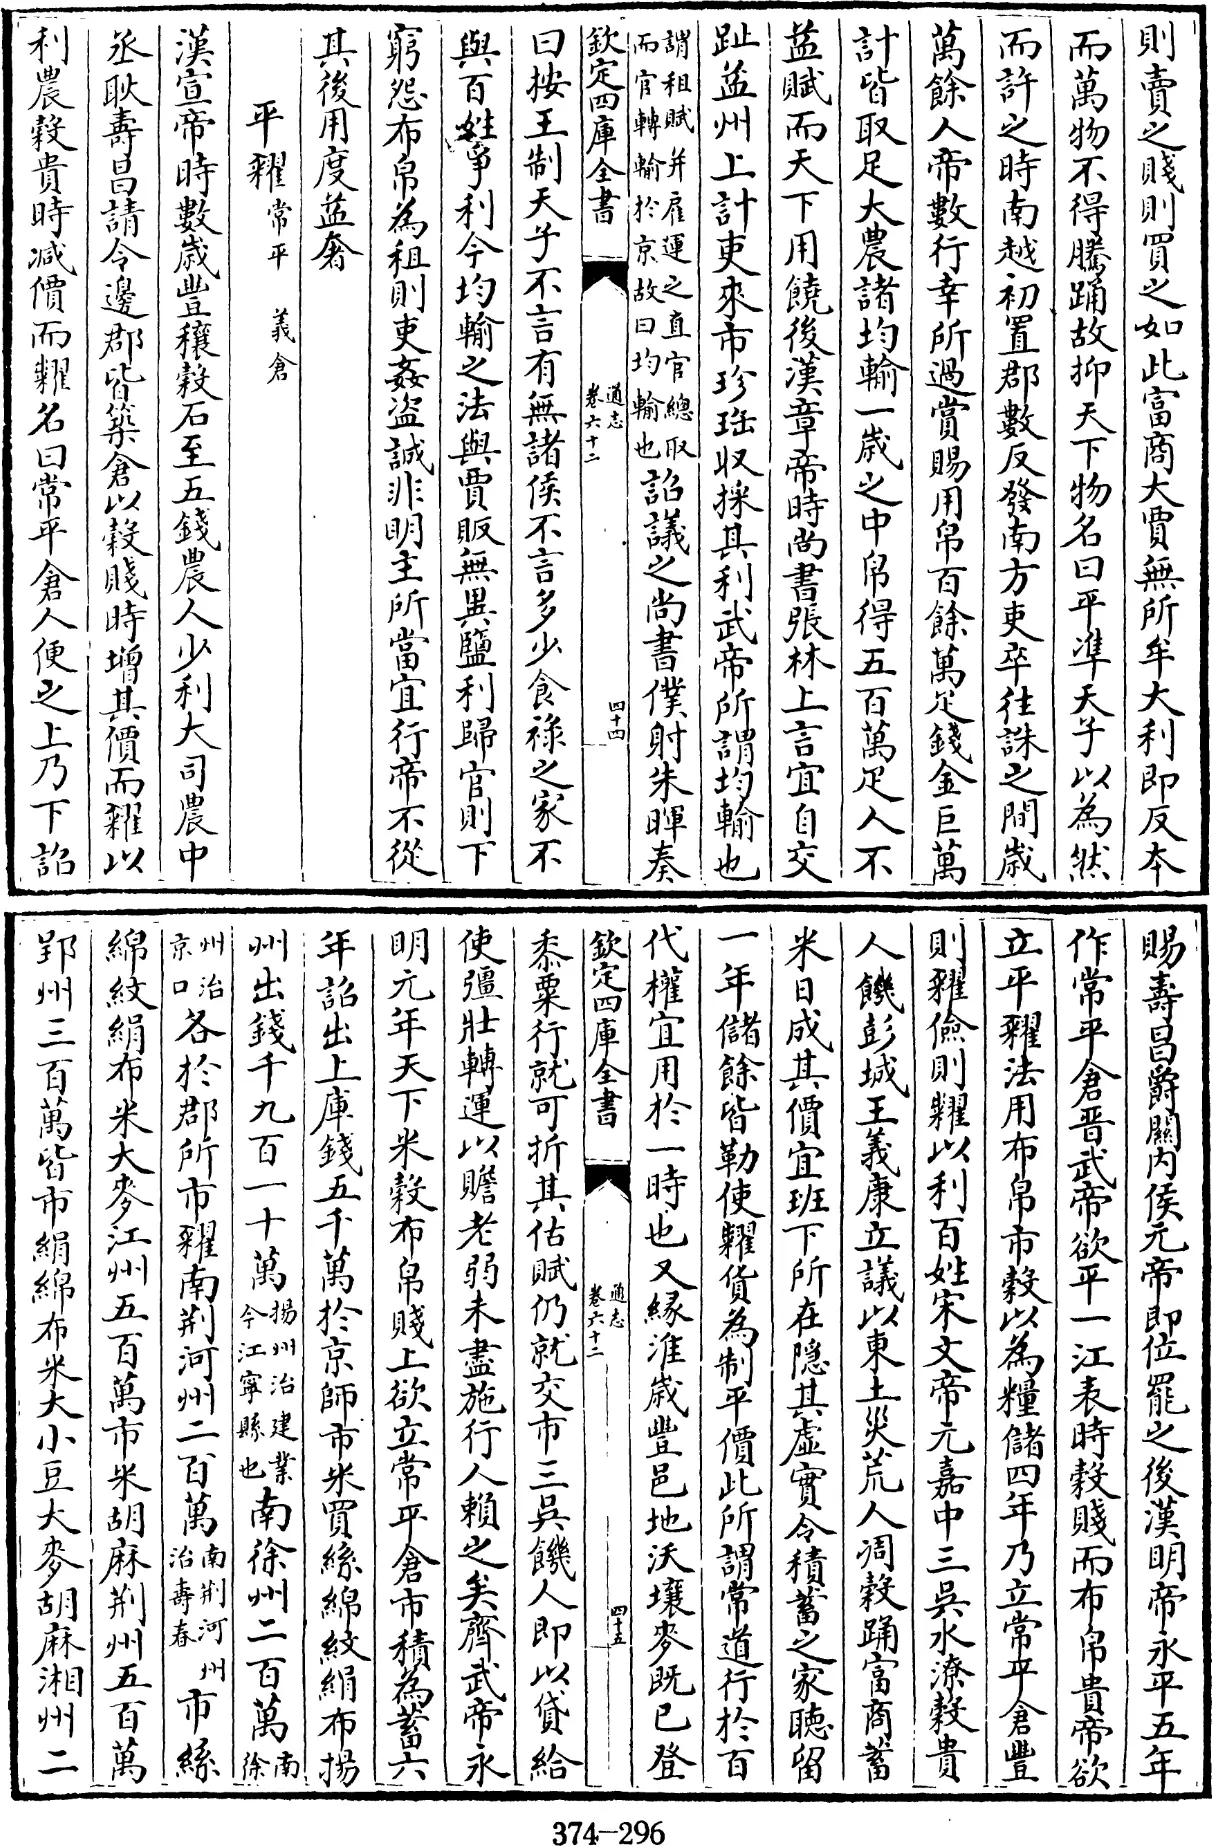 則賣之賤則買之如此富商大賈無所牟大利即反本
而萬物不得騰踊故抑天下物名曰平準天子以為然
而許之時南越初置郡數反發南方吏卒往誅之間歲
萬餘人帝數行幸所過賞賜用帛百餘萬疋錢金巨萬
計皆取足大農諸均輸一歲之中帛得五百萬疋人不
益賦而天下用饒後漢章帝時尚書張林上言宜自交
趾益州上計吏來市珍珤收採其利武帝所謂均輸也
謂租賦并雇運之直官總取
而官轉輸於京故曰均輸也
詔議之尚書僕射朱暉奏
欽定四庫全書
通志
卷六十二
四十四
曰按王制天子不言有無諸侯不言多少食祿之家不
與百姓爭利今均輸之法與賈販無異鹽利歸官則下
窮怨布帛為租則吏姦盜誠非明主所當宜行帝不從
其後用度益奢
平糴 常平 義倉
漢宣帝時數歲豐穰穀石至五錢農人少利大司農中
丞耿壽昌請令邊郡皆築倉以穀賤時增其價而糴以
利農穀貴時減價而糶名曰常平倉人便之上乃下詔
賜壽昌爵關內侯元帝即位罷之後漢明帝永平五年
作常平倉晉武帝欲平一江表時穀賤而布帛貴帝欲
立平糴法用布帛市穀以為糧儲四年乃立常平倉豐
則糴儉則糶以利百姓宋文帝元嘉中三吳水潦穀貴
人饑彭城王義康立議以東土災荒人凋穀踊富商蓄
米日成其價宜班下所在隱其虛實令積蓄之家聽留
一年儲餘皆勒使糶貨為制平價此所謂常道行於百
代權宜用於一時也又緣淮歲豐邑地沃壤麥既已登
欽定四庫全書
通志
卷六十二
四十五
黍粟行就可折其估賦仍就交市三吳饑人即以貸給
使彊壯轉運以贍老弱未盡施行人賴之矣齊武帝永
明元年天下米穀布帛賤上欲立常平倉市積為蓄六
年詔出上庫錢五千萬於京師市米買絲綿紋絹布揚
州出錢千九百一十萬
揚州治建業
今江寧縣也
南徐州二百萬
南徐
州治
京口
各於郡所市糴南荆河州二百萬
南荆河州
治壽春
市絲
綿紋絹布米大麥江州五百萬市米胡麻荆州五百萬
郢州三百萬皆市絹綿布米大小豆大麥胡麻湘州二
374-296